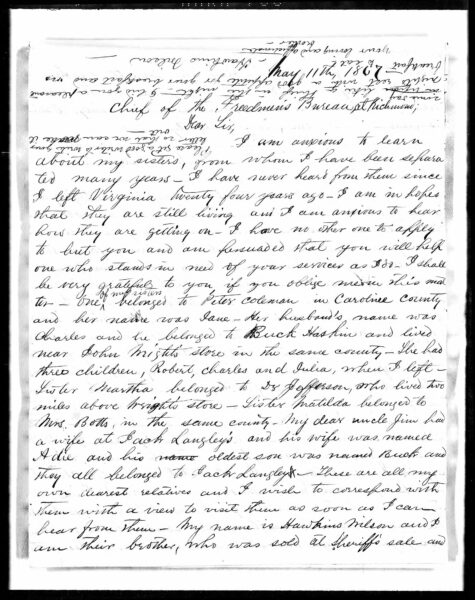 May 11th, 1867
Chief of the Freedmen's Bureau, at Richmond,
Dear Sir,
I am anxious to learn
about my sisters, from whom I have been separa
ted many years - I have never heard from them since
I left Virginia twenty four years ago - I am in hopes
that they are still living and I am anxious to hear
how they are getting on - I have no other one to apply
to but you and am persuaded that you will help
one who stands in need of your services as I do - I shall
be very grateful to you, if you oblige me in this mat
ter - One of my sisters belonged to Peter Coleman in Caroline County
and her name was Jane - Her husband's name was
Charles and he belonged to Buck Haskin and lived
near John Wright's store in the same county - She had
three children, Robert, Charles and Julia, when I left -
Sister Martha belonged to Dr Jefferson, who lived two
miles above Wright's store - Sister Matilda belonged to
Mrs. Botts, in the same county - My dear uncle Jim had
a wife at Jack Langley's and his wife was named
Adie and his oldest son was named Buck and
they all belonged to Jack Langley - These are all my
own dearest relatives and I wish to correspond with
them with a view to visit them as soon as I can
hear from them - My name is Hawkins Wilson and I
am their brother, who was sold at Sheriff's sale and
Your loving and affectionate
brother -
Hawkins Wilson